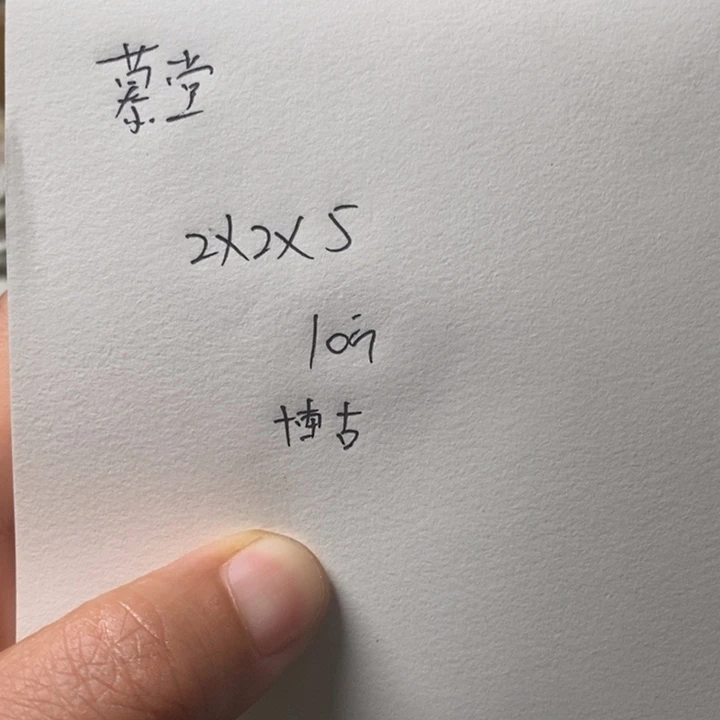 慕堂
2×2×5
10方
博古